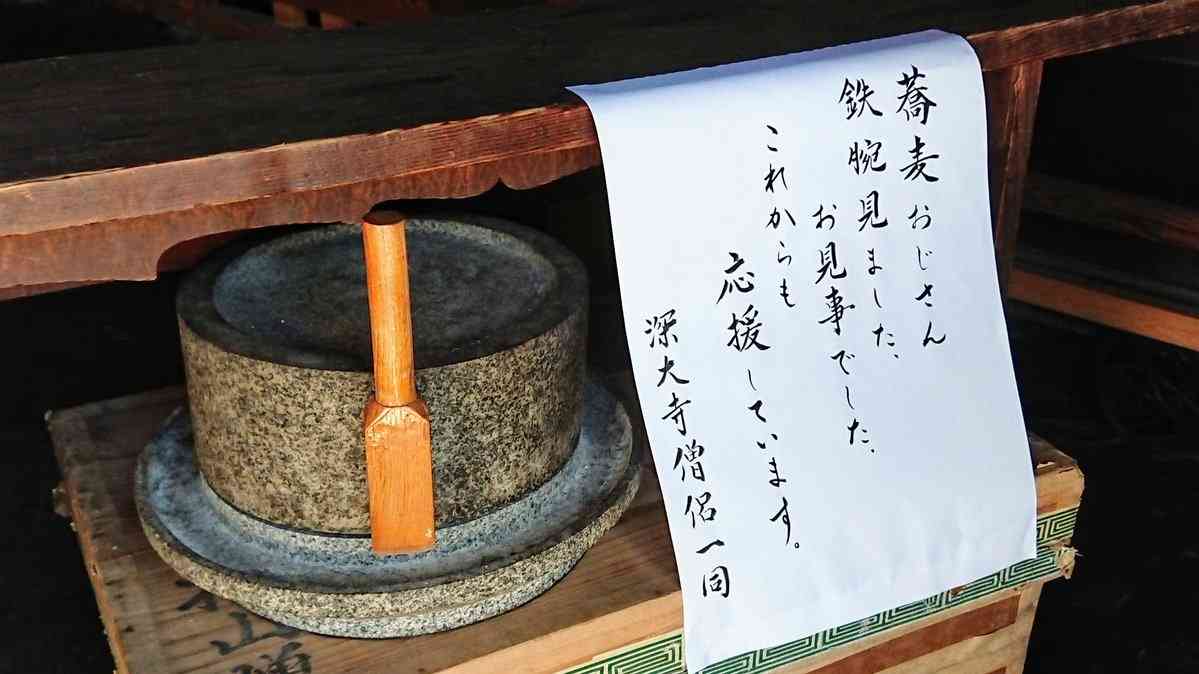 蕎麦おじさん
鉄腕見ました、
お見事でした、
これからも
応援しています。
深大寺僧侶一同